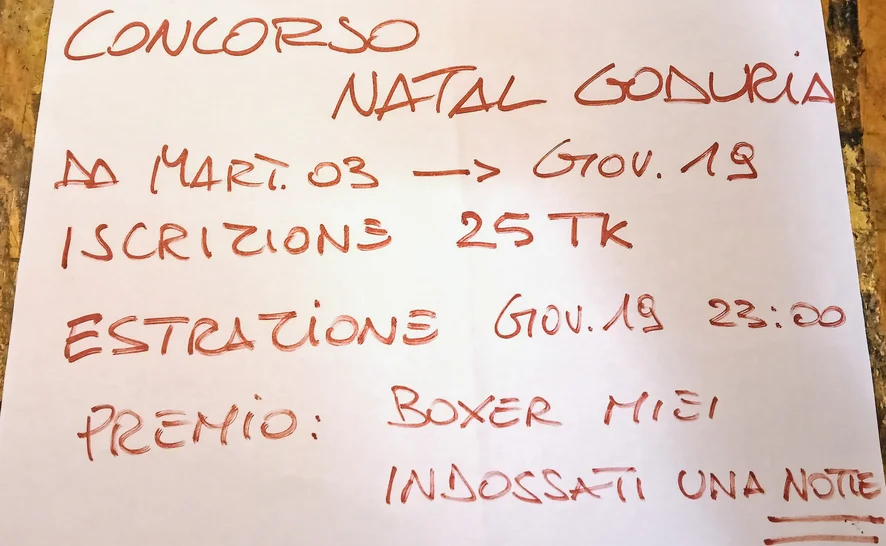 CONCORSO
NATAL GODURIA
DA MART. 03 —> GIOV. 19
ISCRIZIONE 25 TK
ESTRAZIONE GIOV. 19 23:00
PREMIO: BOXER MIEI
INDOSSATI UNA NOTTE